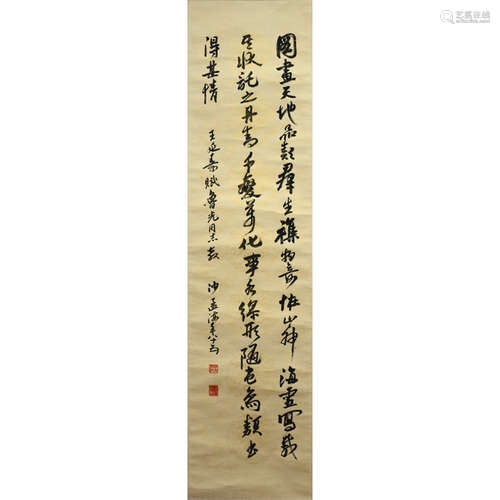 艺狐在线
圖畫天地品類羣生雜物奇怪山神海靈寫載
其狀託之丹青千變萬化事各繆形隨色象類曲
得其情
王延壽賦魯光同志教
沙孟海年八十